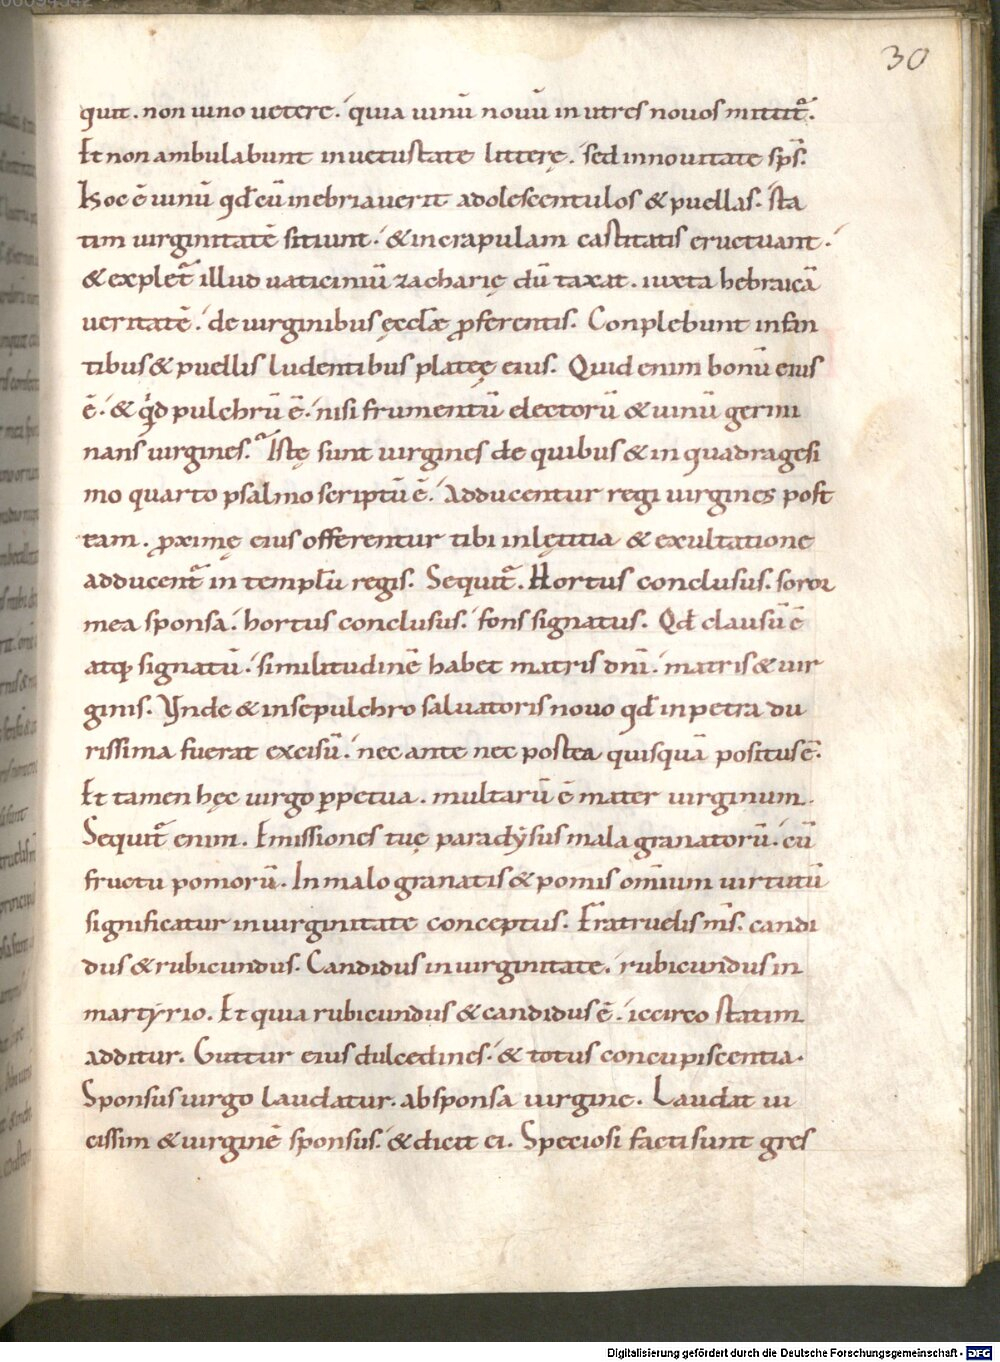 30
quit. non uino uetere. quia uinū nouū in utres nouos mittit᷑.
Et non ambulabunt in uetustate litterę. sed in nouitate sp̄s.
Hoc ē uinū qđ cū inebriauerit adolescentulos & puellas. sta
tim uirginitatē sitiunt. & in crapulam castitatis eructuant.
& explet᷑ illud uaticiniū zacharię dū taxat. iuxta hebraicā
ueritatē. de uirginibus ęcclæ ꝓferentis. Conplebunt infan
tibus & puellis ludentibus plateę eius. Quid enim bonū eius
ē. & qͥd pulchrū ē. nisi frumentū electorū & uinū germi
nans uirgines. Istę sunt uirgines de quibus & in quadragesi
mo quarto psalmo scriptū ē. Adducentur regi uirgines post
eam. ꝓximę eius offerentur tibi in lętitia & exultatione
adducent᷑ in templū regis. Sequit᷑. Hortus conclusus. soror
mea sponsa. hortus conclusus. fons signatus. Qđ clausū ē
atq; signatū. similitudinē habet matris dn̄i. matris & uir
ginis. Ynde & in sepulchro saluatoris nouo qđ in petra du
rissima fuerat excisū. nec ante nec postea quisquā positus ē.
Et tamen hęc uirgo ꝑpetua. multarū ē mater uirginum.
Sequit᷑ enim. Emissiones tuę paradẏsus mala granatorū. cū
fructu pomorū. In malo granatis & pomis om̄ium uirtutū
significatur in uirginitate conceptus. Fratruelis m̄s. candi
dus & rubicundus. Candidus in uirginitate. rubicundus in
martẏrio. Et quia rubicundus & candidus ē. iccirco statim
additur. Guttur eius dulcedines. & totus concupiscentia.
Sponsus uirgo laudatur. ab sponsa uirgine. Laudat ui
cissim & uirginē sponsus. & dicit ei. Speciosi facti sunt gres
Digitalisierung gefördert durch die Deutsche Forschungsgemeinschaft - DFG